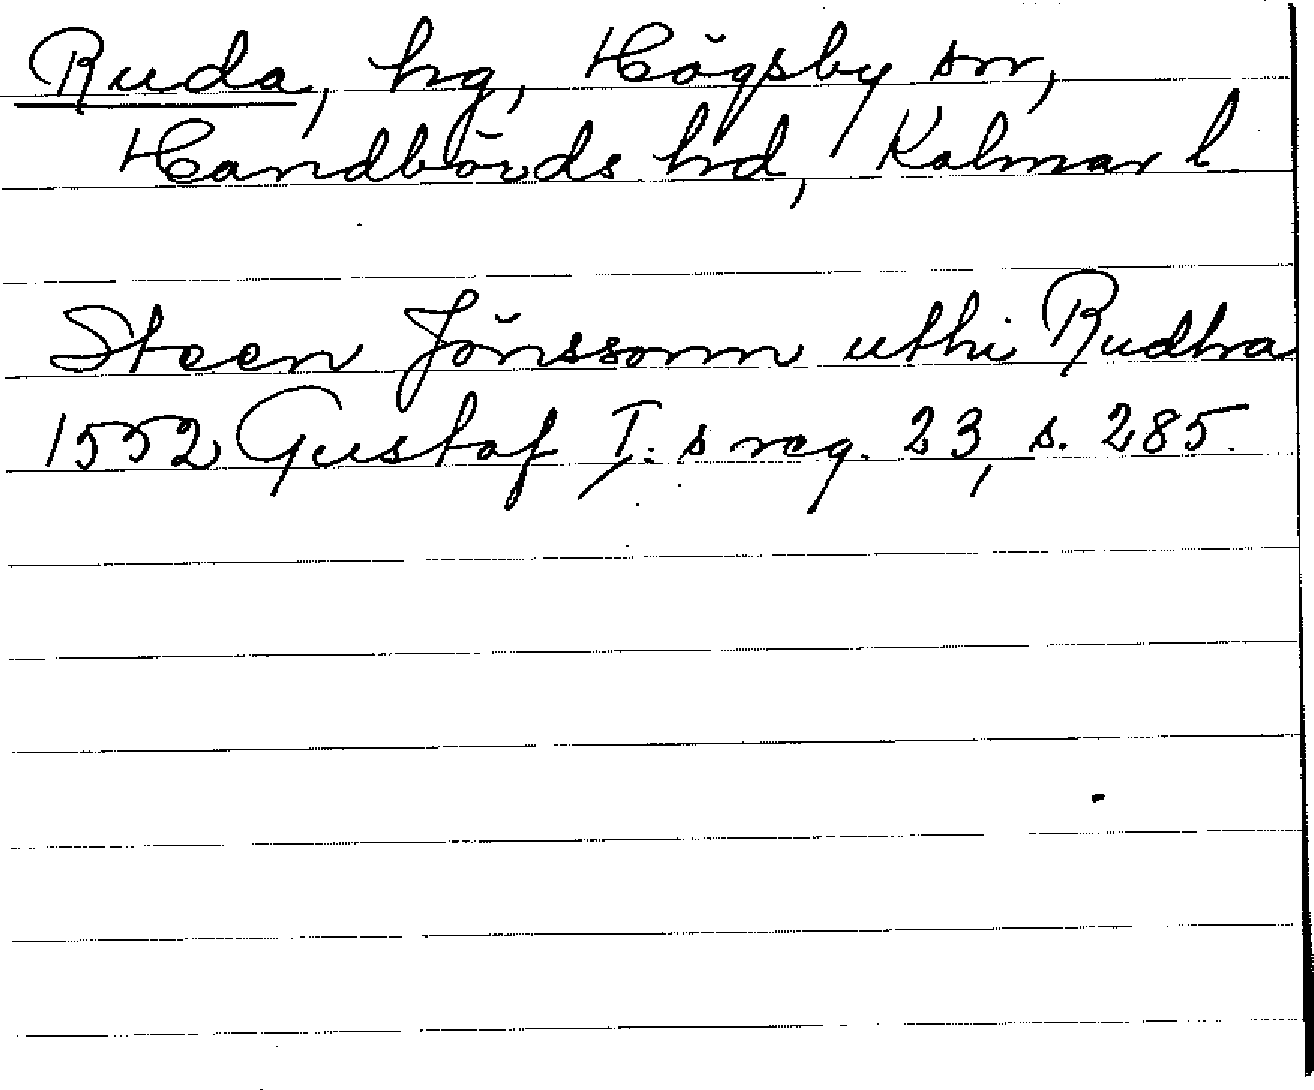 Ruda, hg, Högsby sn,
Handbörds hd, Kalmar l
Steen Jönssonn uthi Rudha
1552 Gustaf I:s reg. 23, s. 285.